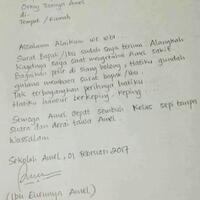 Orang Tuanya Amel
di.
Tempat / Rumah
Assalamu Alaikum wr wba...
Surat Bapak/Ibu sudah saya terima. Alangkah
kagetnya saya saat mengetahui Amel sakit
Bagaikan petir di siang bolong, Hatiku gundah
gulana membaca surat bapak/ibu.
Tak terbayangkan perihnya hatiku...
Hatiku hancur berkeping, keping....
Semoga Amel cepat sembuh Kelas sepi tanpa
suara dan derai tawa Amel.
Wassalam
Sekolah Amel, 01 Februari 2017
(Ibu Gurunya Amel)